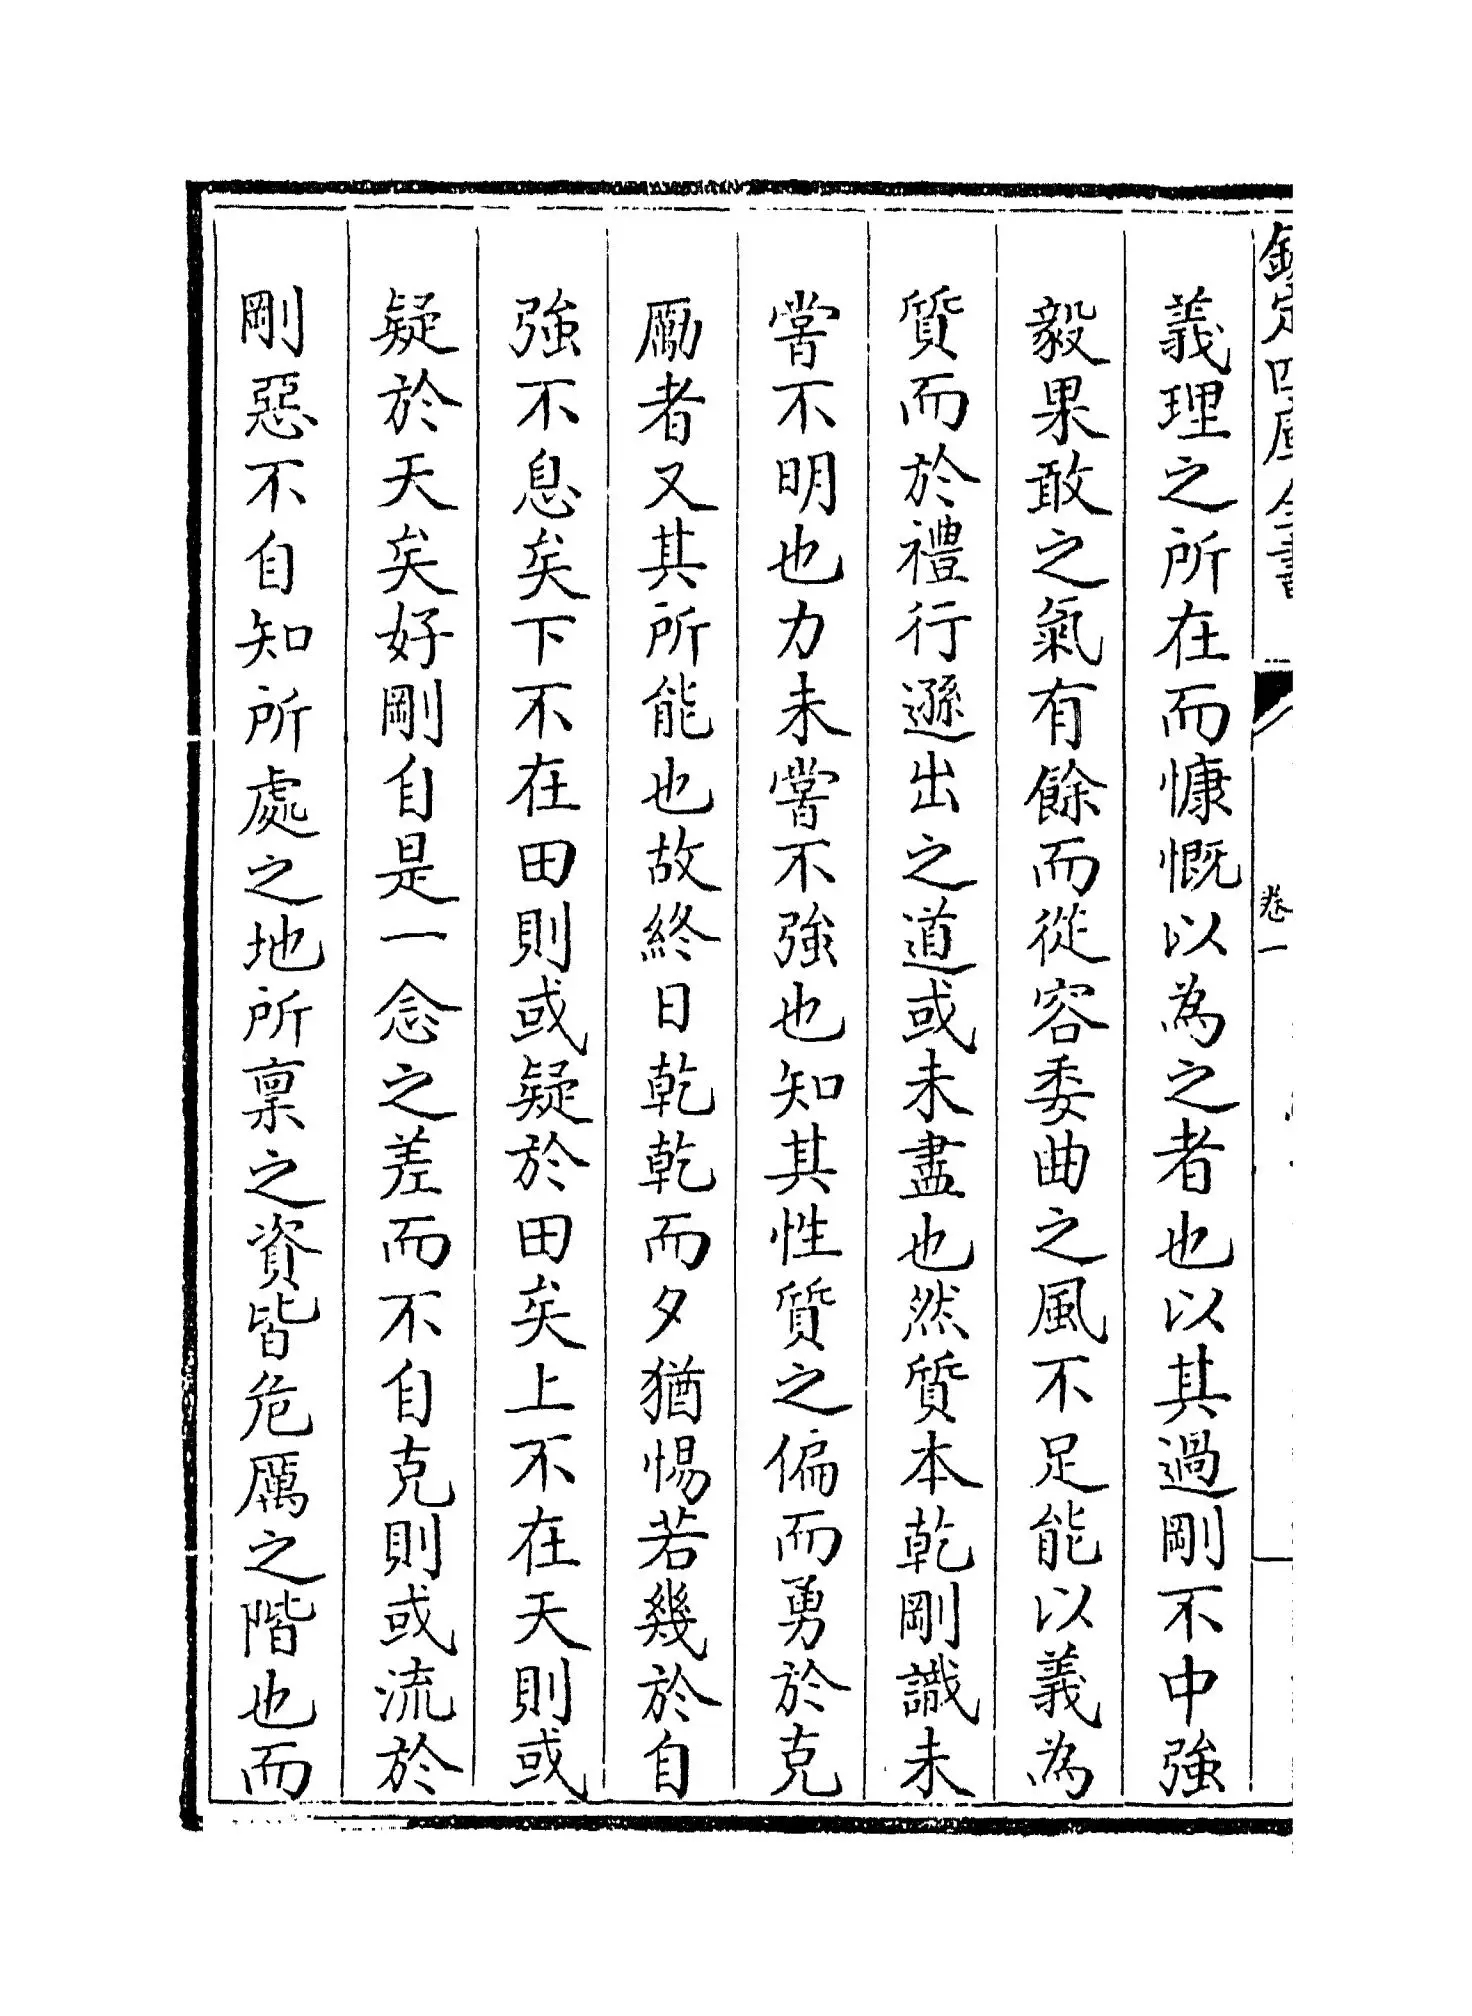 欽定四庫全書
卷一
義理之所在而慷慨以為之者也以其過剛不中強
毅果敢之氣有餘而從容委曲之風不足能以義為
質而於禮行遜出之道或未盡也然質本乾剛識未
嘗不明也力未嘗不強也知其性質之偏而勇於克
勵者又其所能也故終日乾乾而夕猶惕若幾於自
強不息矣下不在田則或疑於田矣上不在天則或
疑於天矣好剛自是一念之差而不自克則或流於
剛惡不自知所處之地所稟之資皆危厲之階也而